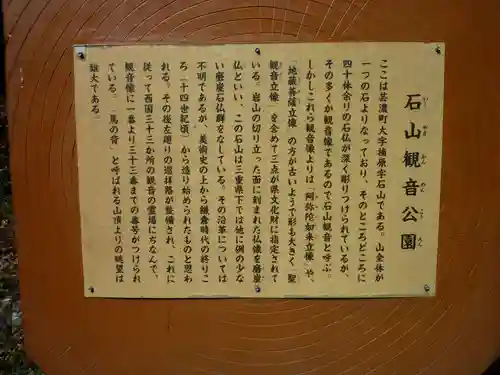 石山観音公園
いし やま かん のん こう えん
ここは芸濃町大字楠原字石山である。山全体が
一つの石よりなっており、そのところどころに
四十体余りの石仏が深く彫りつけられているが、
その多くが観音像であるので石山観音と呼ぶ。
しかしこれら観音像よりは「阿弥陀如来立像」や、
「地蔵菩薩立像」の方が古いようで形も大きく、聖
観音立像」を含めて三点が県文化財に指定されて
いる。岩山の切り立った面に刻まれた仏像を磨崖
仏といい、この石山は三重県下では他に例の少な
い磨崖石仏群をなしている。その沿革については
不明であるが、美術史の上から鎌倉時代の終りこ
ろ（十四世紀頃）から造り始められたものと思わ
れる。その後左廻りの巡拝路が整備され、これに
従って西国三十三か所の観音の霊場にちなんで、
観音像に一番より三十三番までの番号がつけられ
ている。「馬の背」と呼ばれる山頂よりの眺望は
雄大である。